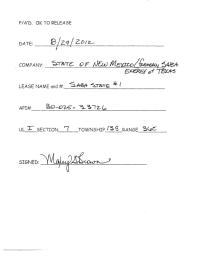 P/A'D. OK TO RELEASE
DATE: 8/29/2012
COMPANY: STATE OF NEW MEXICO/ SABA
ENERGY of TEXAS
LEASE NAME and #: SABA STATE #1
API# 30-025-33726
UL I SECTION 7 TOWNSHIP 13S RANGE 36E
SIGNED: